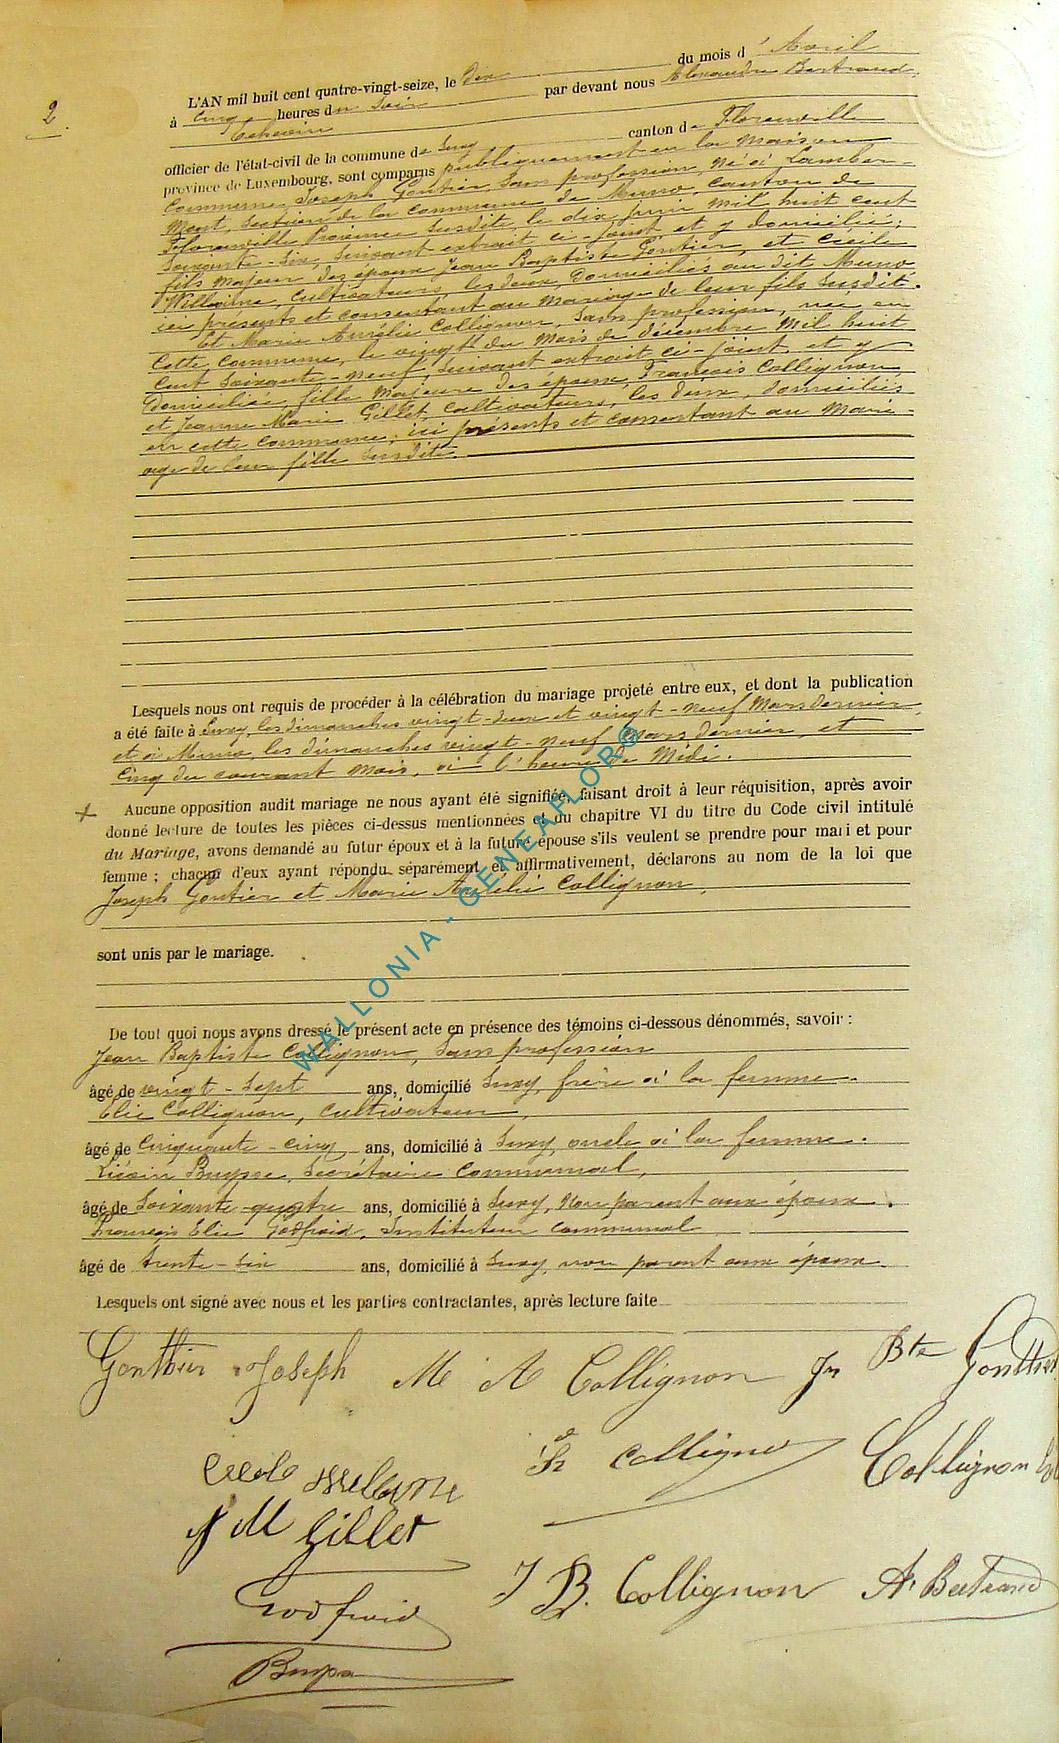 2.
L'AN mil huit cent quatre-vingt-seize, le dix du mois d'Avril
à cinq heures du soir par devant nous Alexandre Bertrand,
Echevin
officier de l'état-civil de la commune de Suxy canton de Florenville
province de Luxembourg, sont comparus publiquement en la maison
Commune, Joseph Gontier, sans profession, né à Lamber-
mont, section de la commune de Muno, canton de
Florenville Province susdite, le dix juin mil huit cent
soixante-six, suivant extrait ci-joint et y domicilié;
fils majeur des époux Jean Baptiste Gontier, et Cécile
cultivateurs, les deux, domiciliés au dit Muno
ici présents et consentant au mariage de leur fils susdit.
Et Marie Aurélie Collignon, sans profession, née en
cette commune, le vingt du mois de décembre mil huit
cent soixante-neuf, suivant extrait ci-joint, et y
domiciliée, fille majeure des époux, François Collignon
et Jeanne Marie Gillet cultivateurs, les deux, domiciliés
en cette commune; ici présents et consentant au mari-
age de leur fille susdite.
Lesquels nous ont requis de procéder à la célébration du mariage projeté entre eux, et dont la publication
a été faite à Suxy, les dimanches vingt-deux et vingt-neuf Mars dernier,
et à Muno, les dimanches vingt-neuf Mars dernier, et
cinq du courant mois, à l'heure de Midi.
+ Aucune opposition audit mariage ne nous ayant été signifiée, faisant droit à leur réquisition, après avoir
donné lecture de toutes les pièces ci-dessus mentionnées et du chapitre VI du titre du Code civil intitulé
du Mariage, avons demandé au futur époux et à la future épouse s'ils veulent se prendre pour mari et pour
femme ; chacun d'eux ayant répondu séparément et affirmativement, déclarons au nom de la loi que
Joseph Gontier et Marie Aurélie Collignon,
sont unis par le mariage.
De tout quoi nous avons dressé le présent acte en présence des témoins ci-dessous dénommés, savoir :
Jean Baptiste Collignon, sans profession
âgé de vingt-sept ans, domicilié Suxy, frère à la femme.
Elie Collignon, cultivateur,
âgé de cinquante-cinq ans, domicilié à Suxy, oncle à la femme.
Secrétaire communal,
âgé de soixante-quatre ans, domicilié à Suxy, non parent aux époux.
François Elie Godfroid, Instituteur communal
âgé de trente-six ans, domicilié à Suxy, non parent aux époux.
Lesquels ont signé avec nous et les parties contractantes, après lecture faite
Gonthier Joseph M A Collignon Jn Bte Gonthier
Cécile
Fr Collignon Collignon
J M Gillet
J B. Collignon A. Bertrand
Godfroid
WALLONIA - GENEAFLOR©